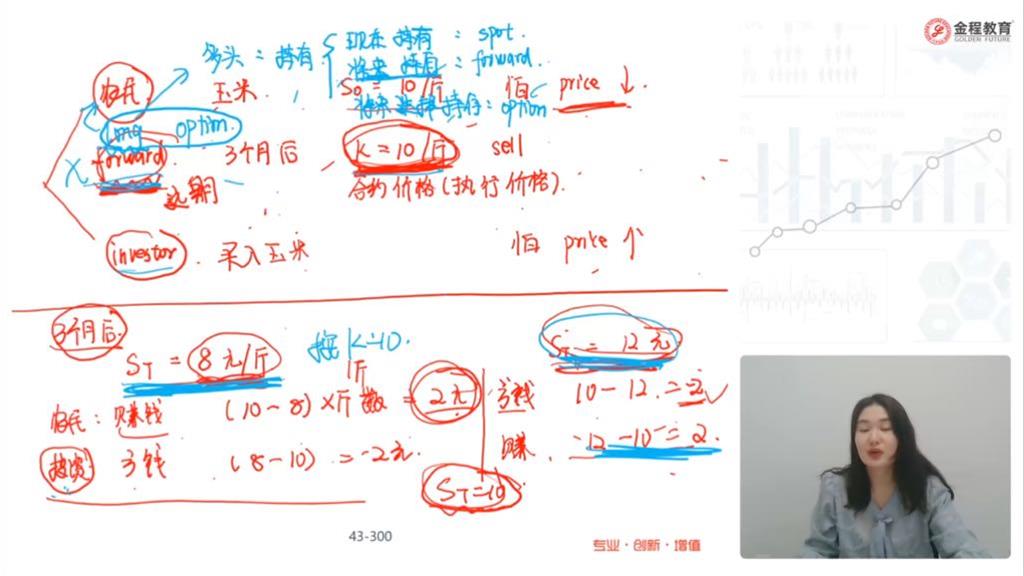 金程教育
GOLDEN FUTURE
多头：持有 现在持有：spot.
将来持有：forward.
农民 玉米. S0 = 10/斤 怕 price ↓.
将来选择持有：option
long option.
forward. 3个月后 K = 10/斤 sell
远期 合约价格(执行价格).
investor. 买入玉米 怕 price ↑
3个月后.
ST = 8元/斤 按K=10. ST = 12元
1斤
农民：赚钱 (10-8)×斤数 = 2元 亏钱 10-12=-2
投资 亏钱 (8-10) = -2元. 赚. 12-10=2.
ST=10
43-300
专业·创新·增值